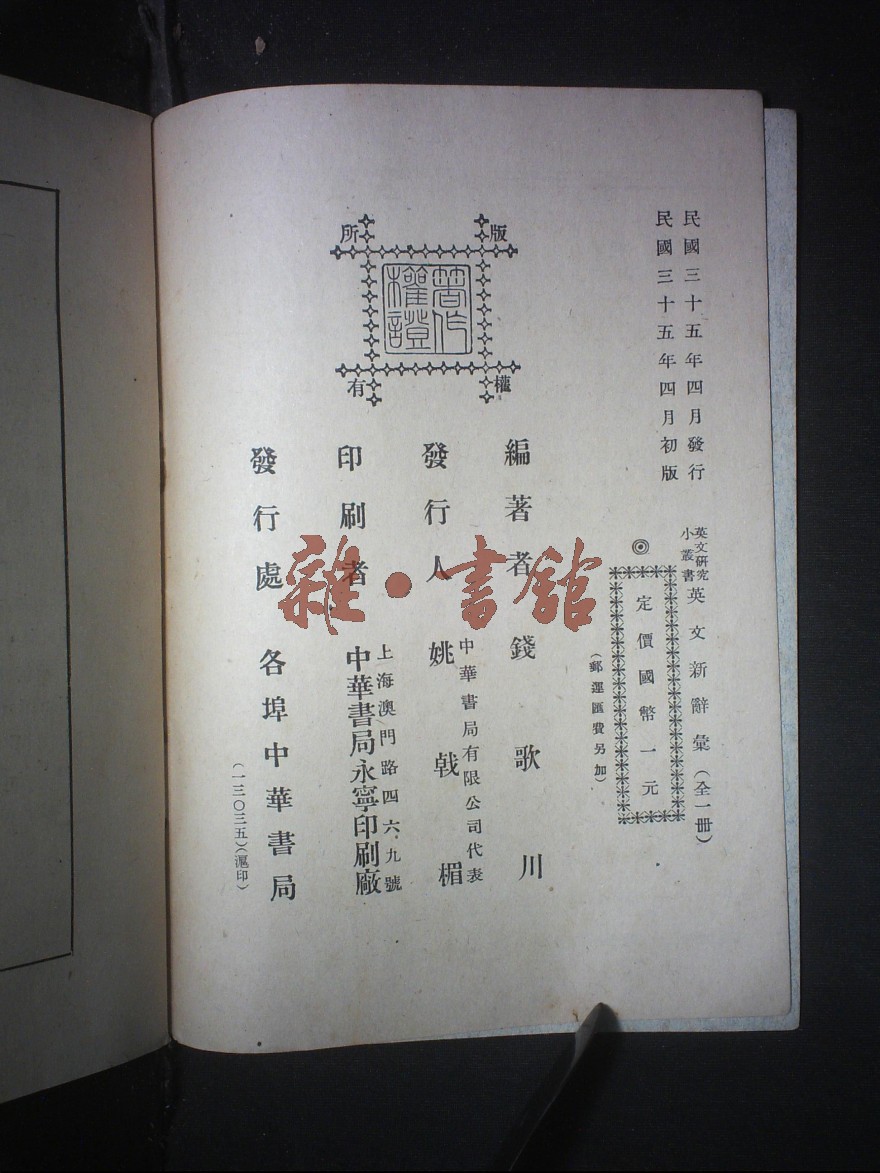 民國三十五年四月發行
民國三十五年四月初版
英文研究
小叢書
英文新辭彙（全一冊）
◎
定價國幣一元
（郵運匯費另加）
版權所有
著作權證
編著者 錢歌川
發行人
中華書局有限公司代表
姚戟楣
印刷者
上海澳門路四六九號
中華書局永寧印刷廠
發行處 各埠中華書局
（一三〇三五）（滬印）
雜·書館